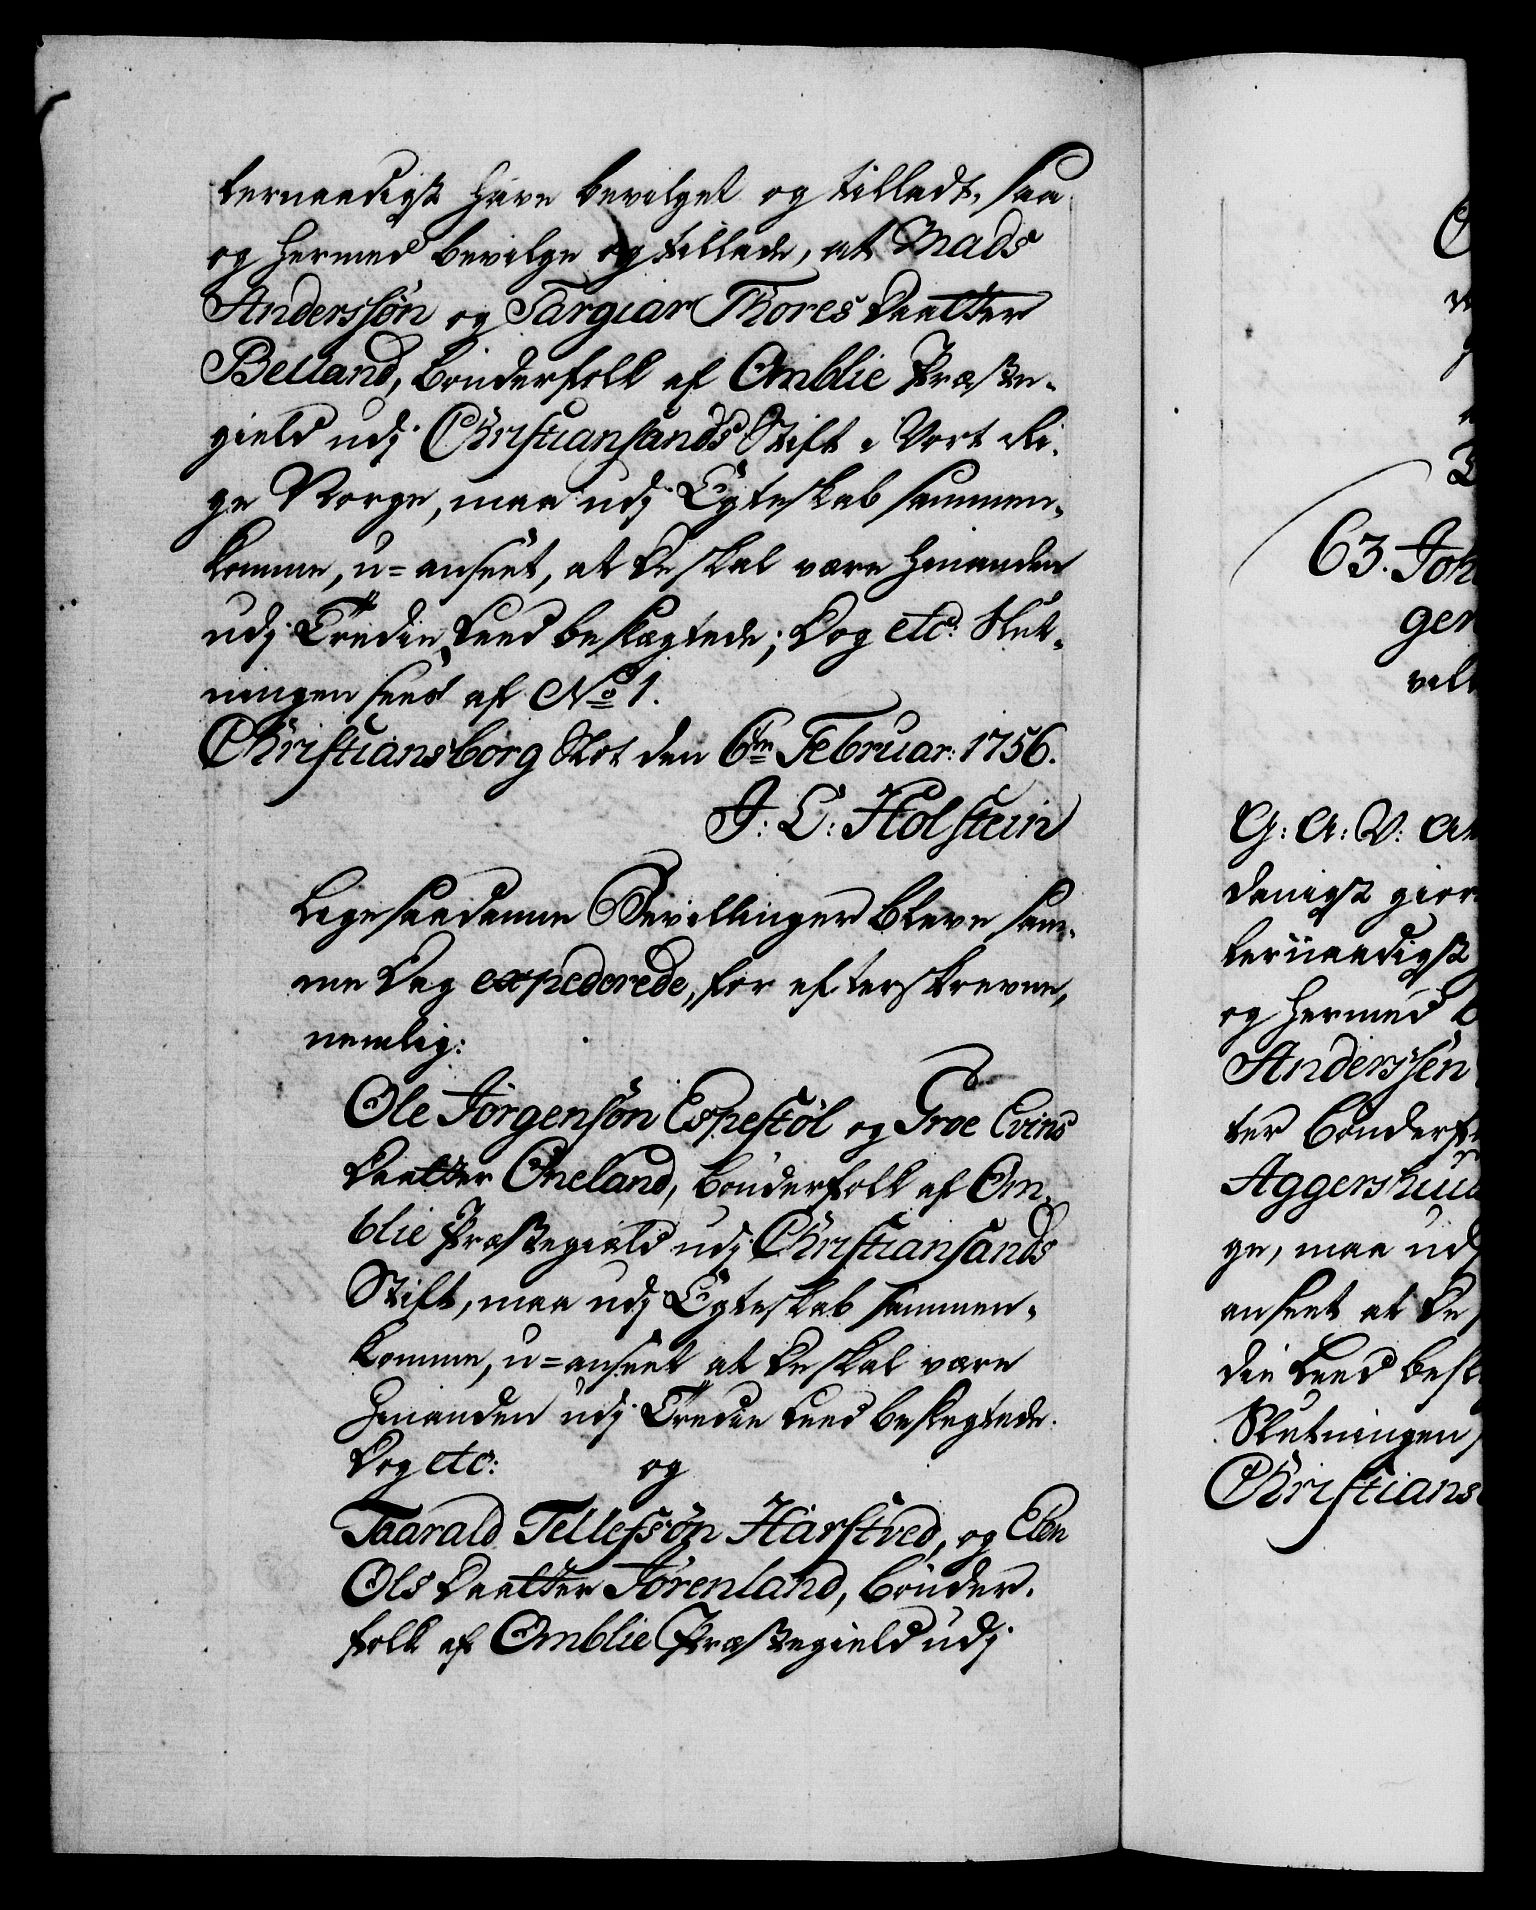 ternaadigst have bevilget og tilladt, saa
og hermed bevilge og tillade, at Mads
Anderssøn og Targiar Thores Daatter
Belland, bønderfolk af Omblie Præste-
gield udj Christiansands Stift i Vort Ri-
ge Norge, maa udj Egteskab sammen-
komme, u=anseet, at de skal være hinanden
udj Tredie Leed beslægtede; Dog etc: Slut-
ningen sees af No 1.
Christiansborg Slot den 6te Februar: 1756.
J: L: Holstein
Ligesaadanne Bevillinger bleve sam-
me Dag expederede, for efterskrevne,
nemlig:
Ole Jørgensøn Espestøl og Groe Evins
Daatter Oneland, bønderfolk af Om-
blie Præstegield udj Christiansands
Stift, maa udj Egteskab sammen-
komme, u=anseet at de skal være
hinanden udj Tredie Leed beslegtede.
Dog etc: og
Taarald Tellefssøn Harstved, og Elen
Ols Daatter Jørenland, bønder-
folk af Omblie Præstegield udj
63. Joh
gen
G: A: V: At
danigst gior
ternaadigst
og hermed b
Anderssen
ter bønderfo
Aggershuu
ge, maa udj
anseet at de
die Leed besl
Slutningen
Christians